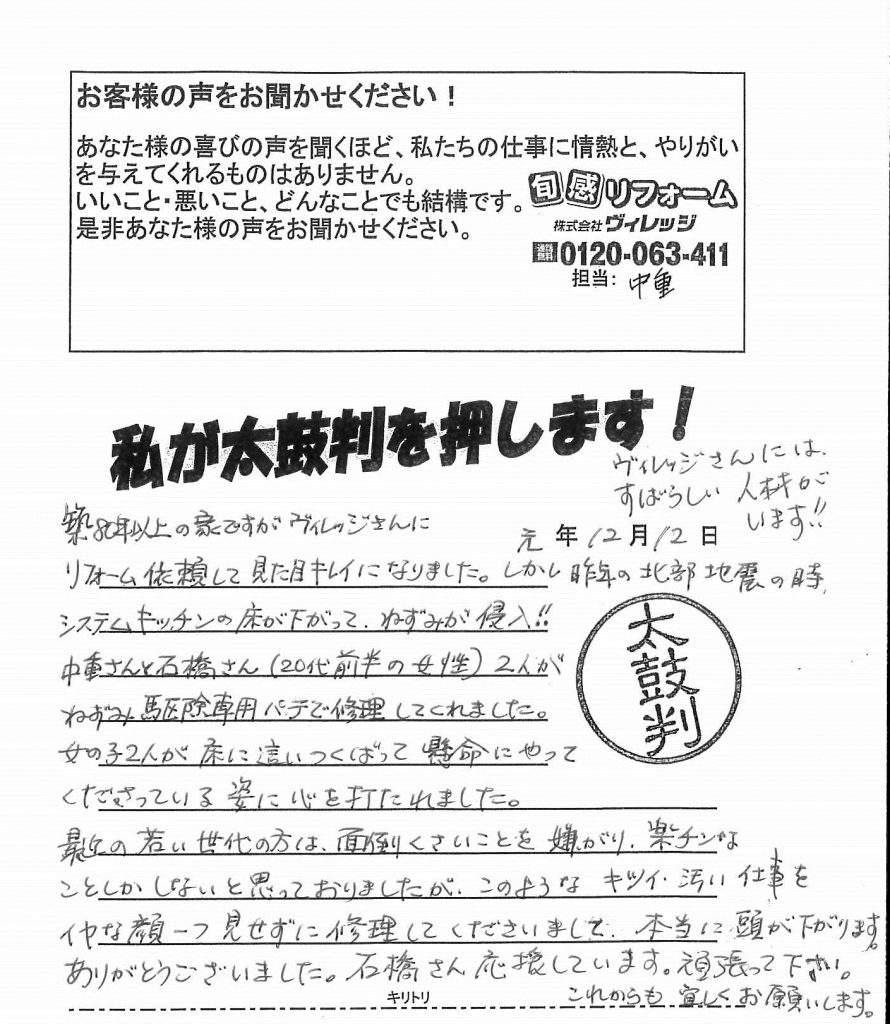 お客様の声をお聞かせください！
あなた様の喜びの声を聞くほど、私たちの仕事に情熱と、やりがい
を与えてくれるものはありません。
いいこと・悪いこと、どんなことでも結構です。
是非あなた様の声をお聞かせください。
旬感リフォーム
株式会社ヴィレッジ
0120-063-411
担当：中重
私が太鼓判を押します！
ヴィレッジさんには、
すばらしい人材が
います!!
元年12月12日
築80年以上の家ですがヴィレッジさんに
リフォーム依頼して見た目キレイになりました。しかし昨年の北部地震の時、
システムキッチンの床が下がって、ねずみが侵入!!
中重さんと石橋さん（20代前半の女性）2人が
ねずみ駆除専用パテで修理してくれました。
女の子2人が床に這いつくばって懸命にやって
くださっている姿に心を打たれました。
太鼓判
最近の若い世代の方は、面倒くさいことを嫌がり、楽チンな
ことしかしないと思っておりましたが、このようなキツイ・汚い仕事を
イヤな顔一つ見せずに修理してくださいまして、本当に頭が下がります。
ありがとうございました。石橋さん応援しています。頑張って下さい。
これからも宜しくお願いします。
キリトリ